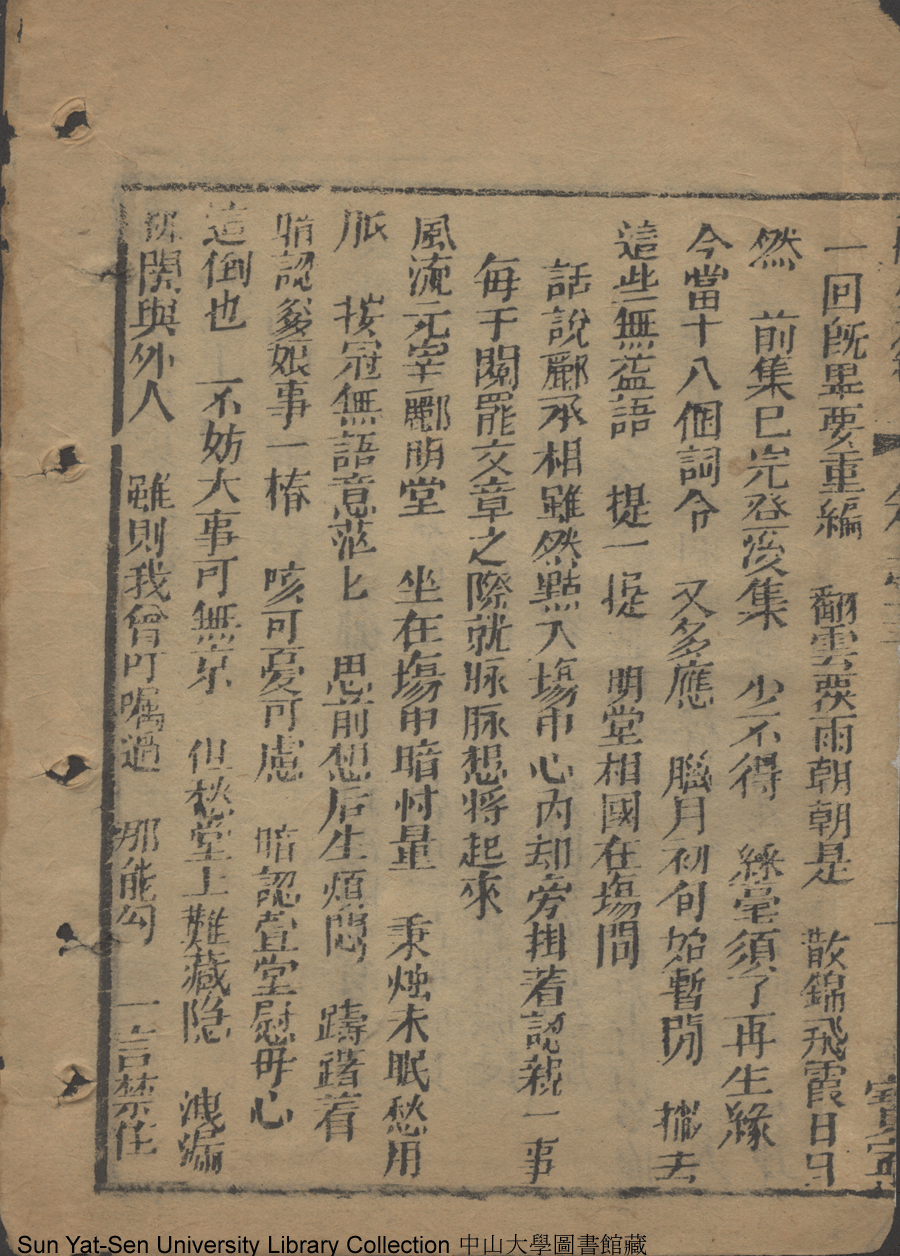 一回既畢要重編　翻雲覆雨朝朝是　散錦飛霞日日
然　前集已完登後集　少不得　絲毫須了再生緣
今當十八個詞令　又多應　臘月初旬始暫閒　拋去
這些無益語　提一提　明堂相國在塲間
話說酈承相雖然點入塲中心內却旁掛着認親一事
每于閱罷文章之際就脉脉想将起來
風流元宰酈明堂　坐在塲中暗忖量　秉烛未眠愁用
　按冠無語意茫匕　思前想后生煩悶　躊躇着
暗認爹娘事一樁　咳可憂可慮　暗認萱堂慰母心
這倒也　不妨大事可無京　但愁堂上難藏隐　洩漏
開與外人　雖則我曾叮嘱過　那能勾　一言禁住
Sun Yat-Sen University Library Collection 中山大學圖書館藏